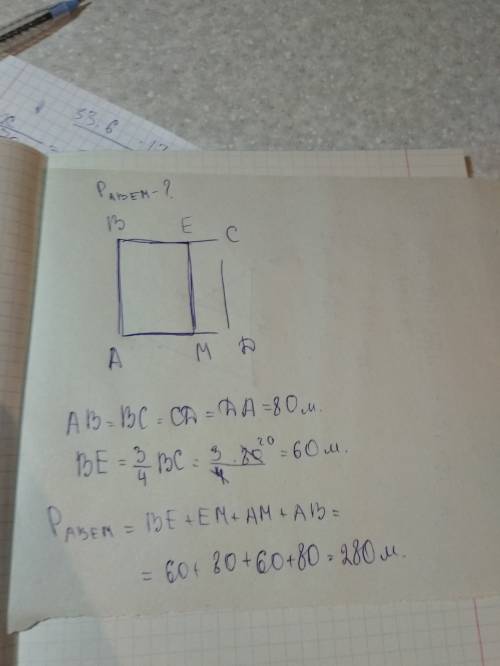 53,6
P ABEM - ?
B E C
A M D
AB = BC = CD = DA = 80 м.
BE = 3/4 BC = 3 · 80 20 / 4 = 60 м.
P ABEM = BE + EM + AM + AB =
= 60 + 80 + 60 + 80 = 280 м.